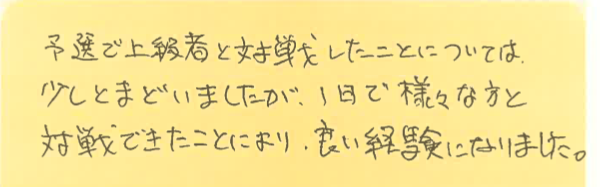 予選で上級者と対戦したことについては、
少しとまどいましたが、1日で様々な方と
対戦できたことにより、良い経験になりました。